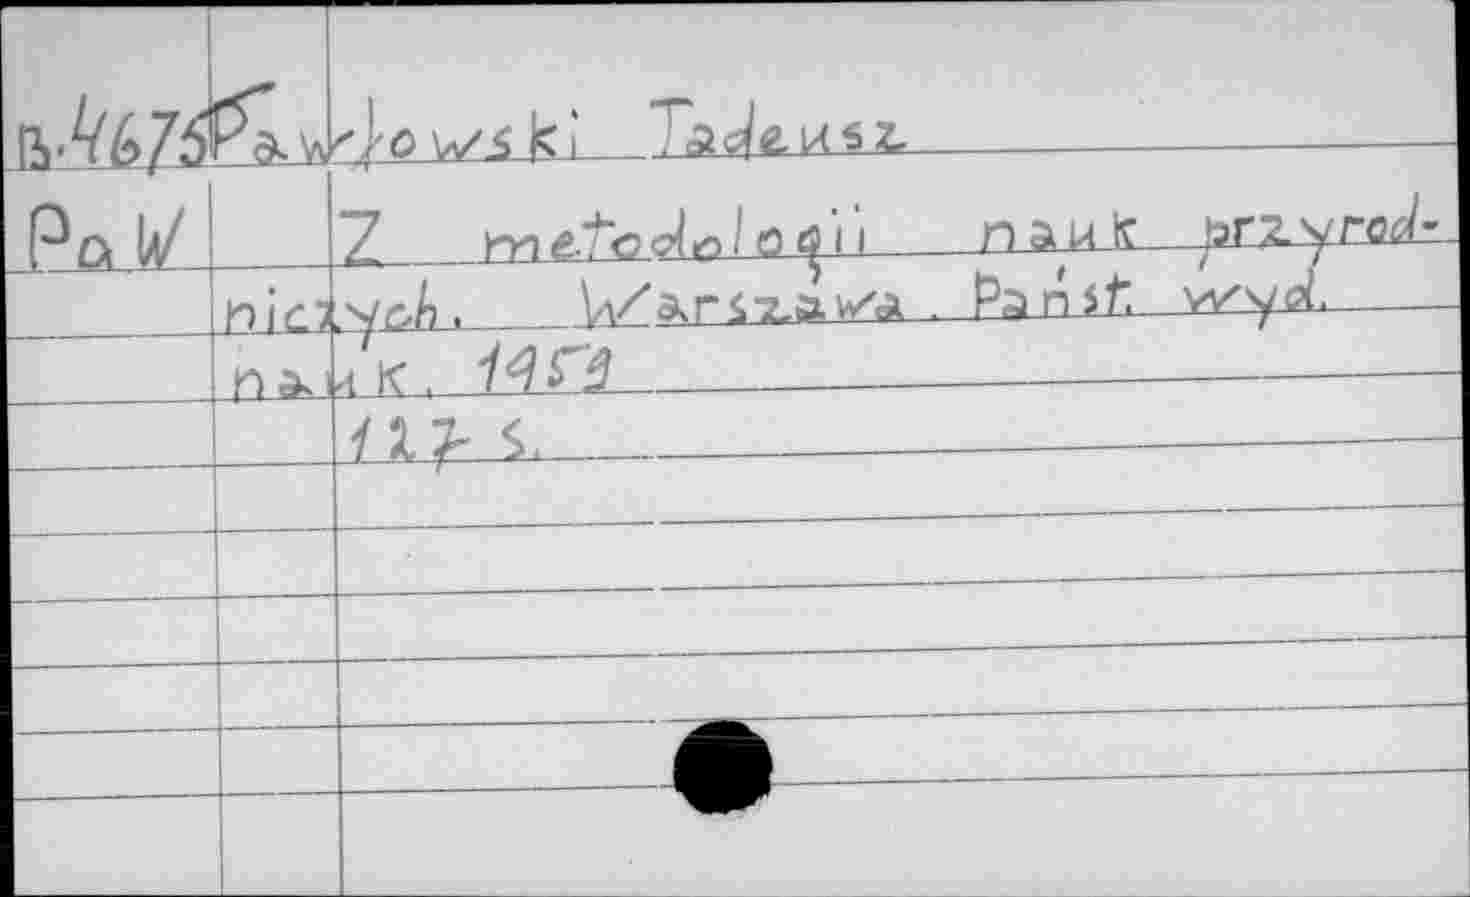 B.4675 Pawłowski Tadeusz
PaW Z metodologii nauk przyrod-
niczych. Warszawa. Państ. wyd.
nauk. 1959
127 s.